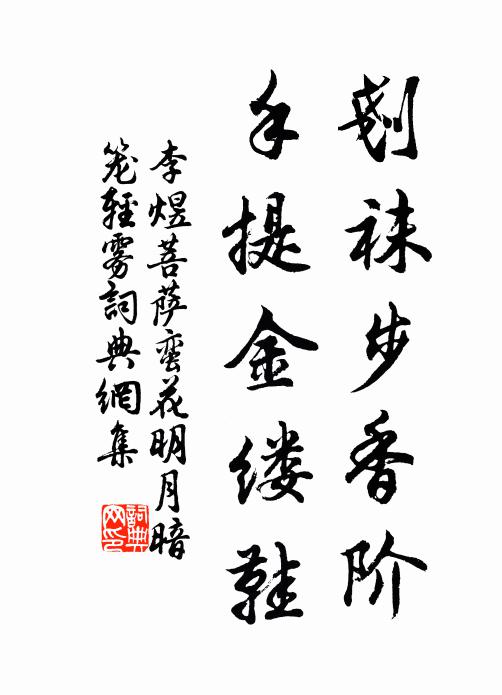 刬袜步香阶
手提金缕鞋
李煜菩萨蛮花明月暗
笼轻雾词典网集
词典
网印